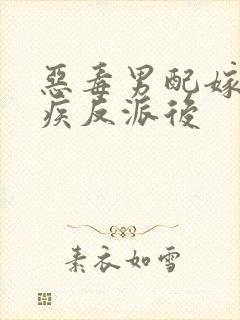 惡毒男配嫁
疾反派後
素衣如雪